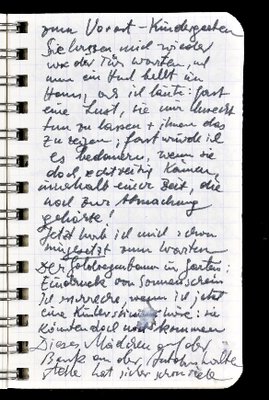 zum Vorort-Kindergarten
Sie lassen mich wieder
vor der Tür warten, u
nur ein Hund bellt im
Haus, als ich läute: fast
eine Lust, sie mir Unrecht
tun zu lassen + ihnen das
zu zeigen; fast würde ich
es bedauern, wenn sie
doch rechtzeitig kämen,
innerhalb einer Zeit, die
noch zur Abmachung
gehörte!
Jetzt hab ich mich schon
hingesetzt zum Warten
Der Goldregenbaum im Garten:
Eindruck von Sonnenschein
Ich erschräke, wenn ich jetzt
eine Kinderstimme höre: sie
könnten doch noch kommen
Dieses Mädchen auf der
Bank an der Autobushalte
stelle hat sicher schon viele